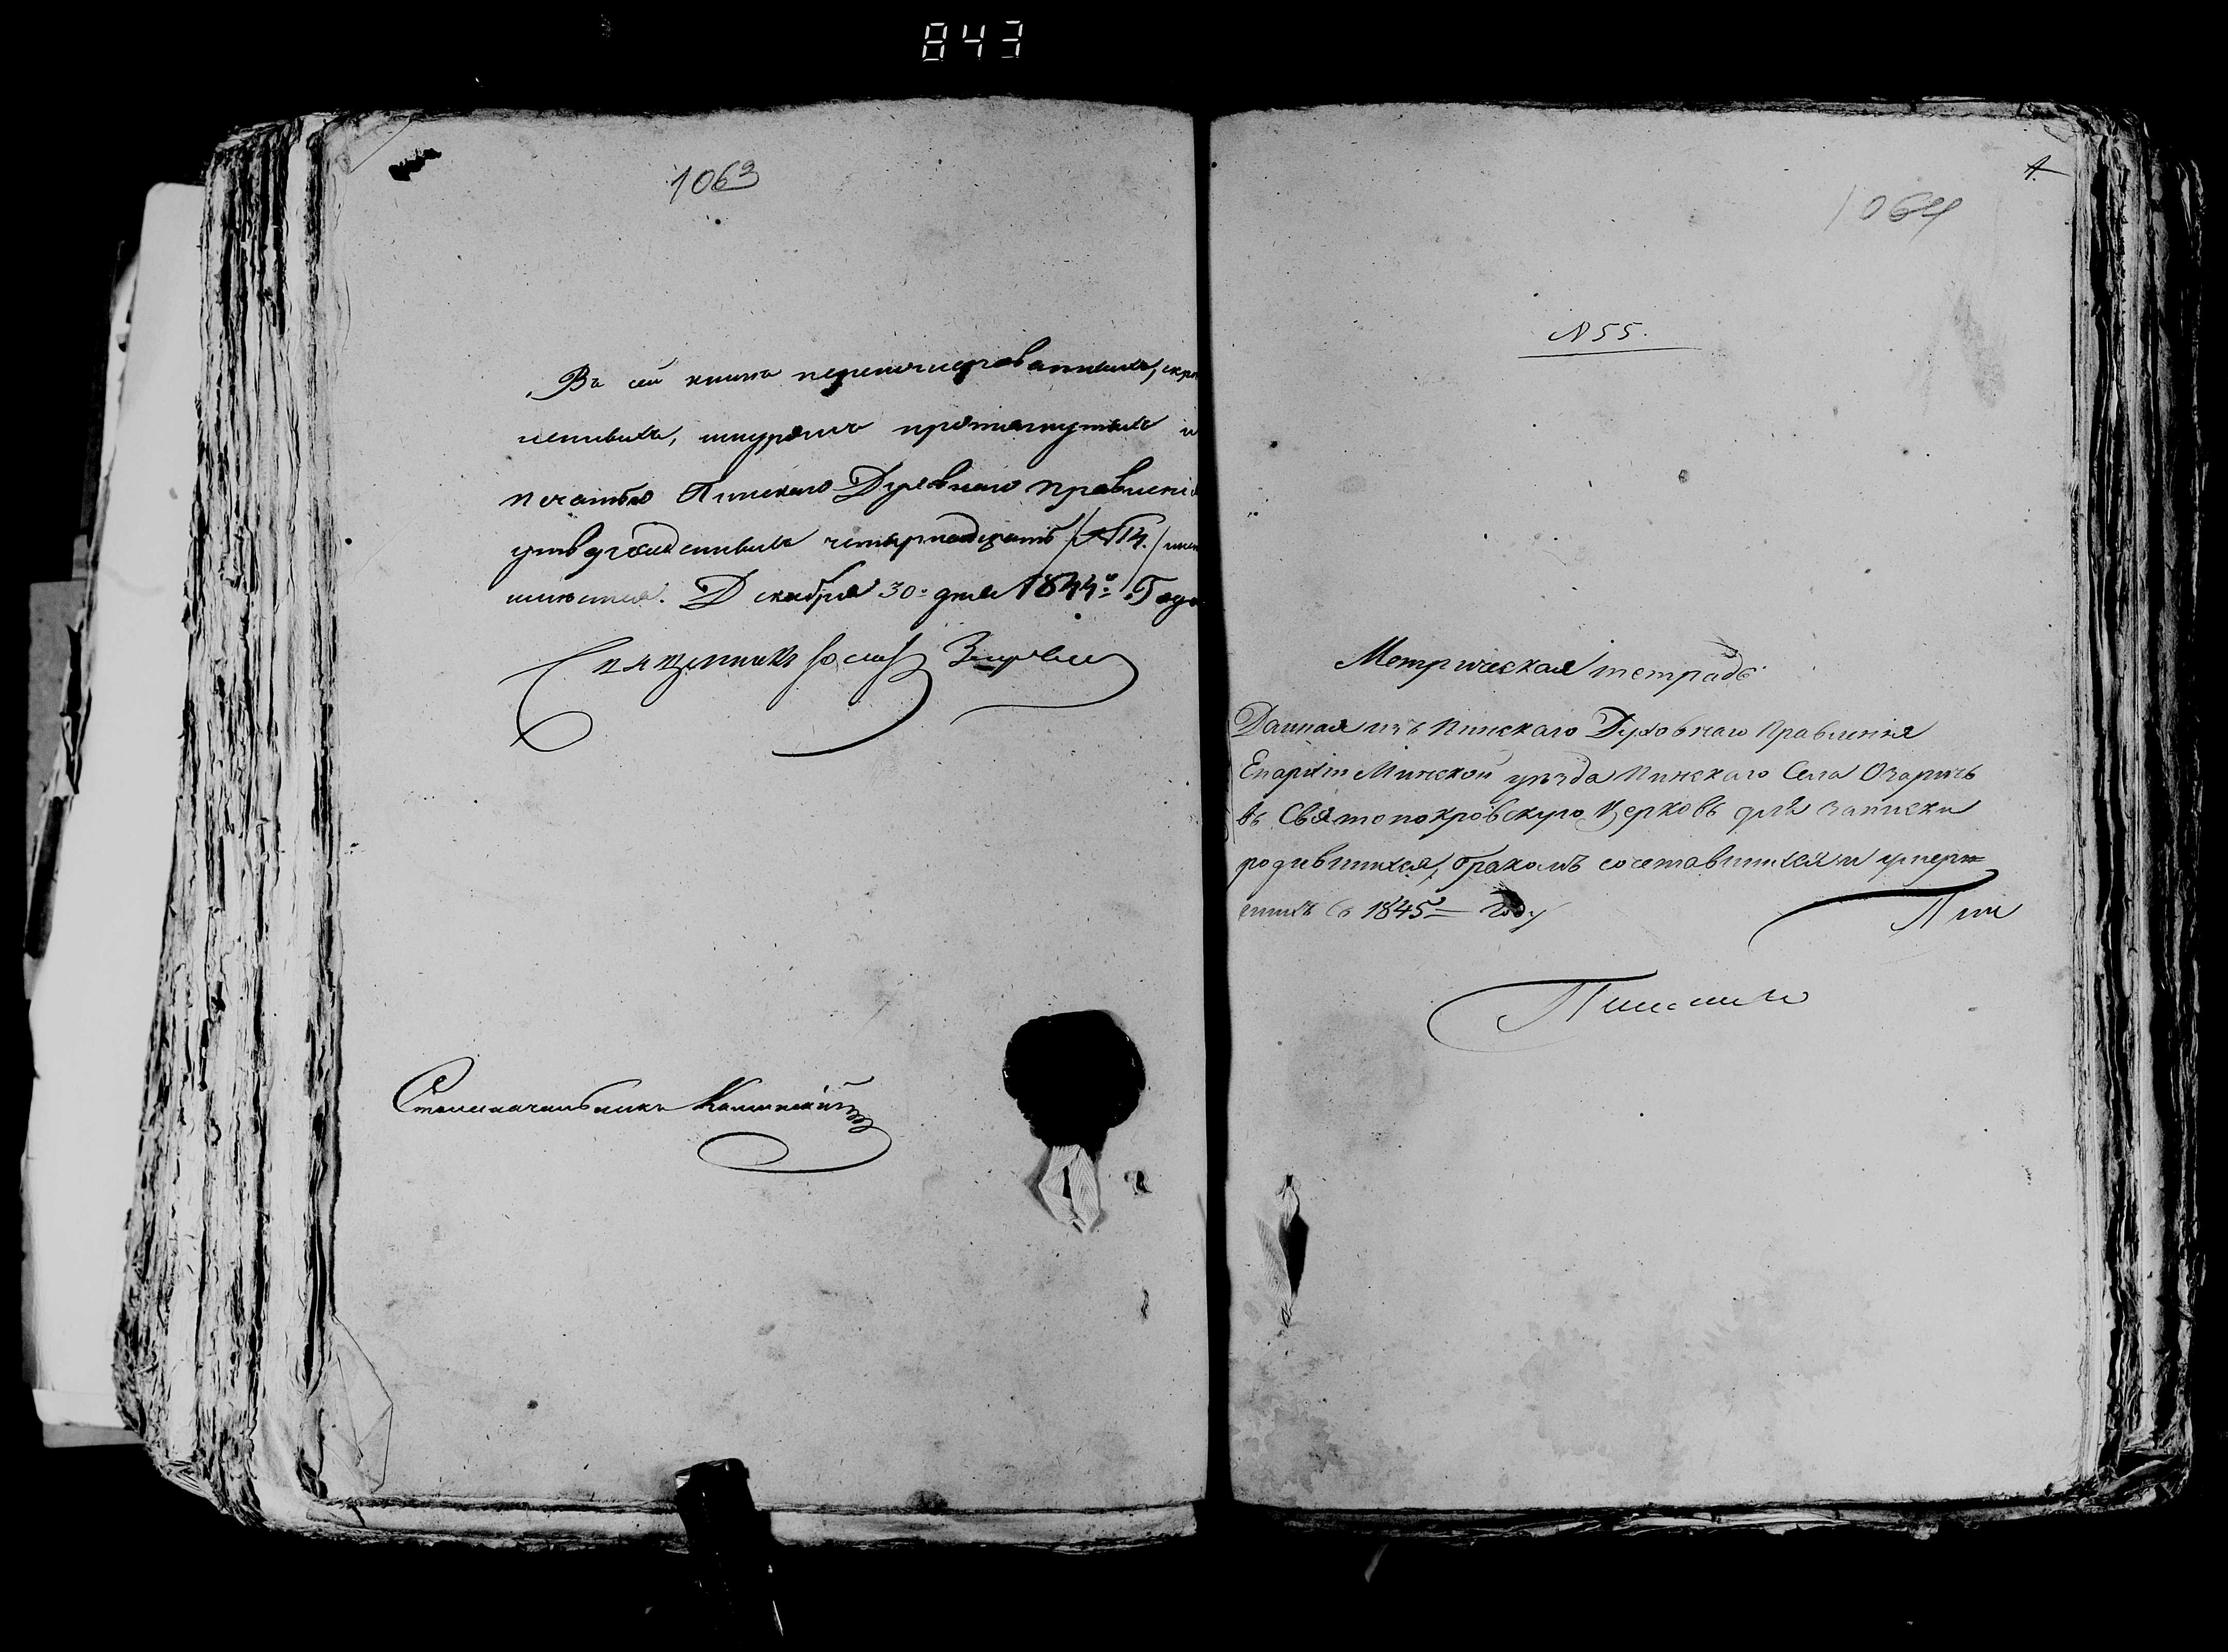 843
1063
Въ сей книгѣ перенумерованныхъ, скрѣ
пленныхъ, шнуромъ протянутыхъ и
печатью Пинскаго Духовнаго Правленія
утвержденныхъ четырнадцать /№14./
листовъ. Декабря 30: дня 1844: Года
Священникъ Іосифъ
Столоначальникъ
1.
1064
N 55.
Метрическая тетрадь
Данная изъ Пинскаго Духовнаго Правленія
Епархіи Минской уѣзда Пинскаго Села Озаричь
въ Святопокровскую Церковь для записки
родившихся, бракомъ сочетавшихся и умерш=
ихъ Съ 1845 = Году